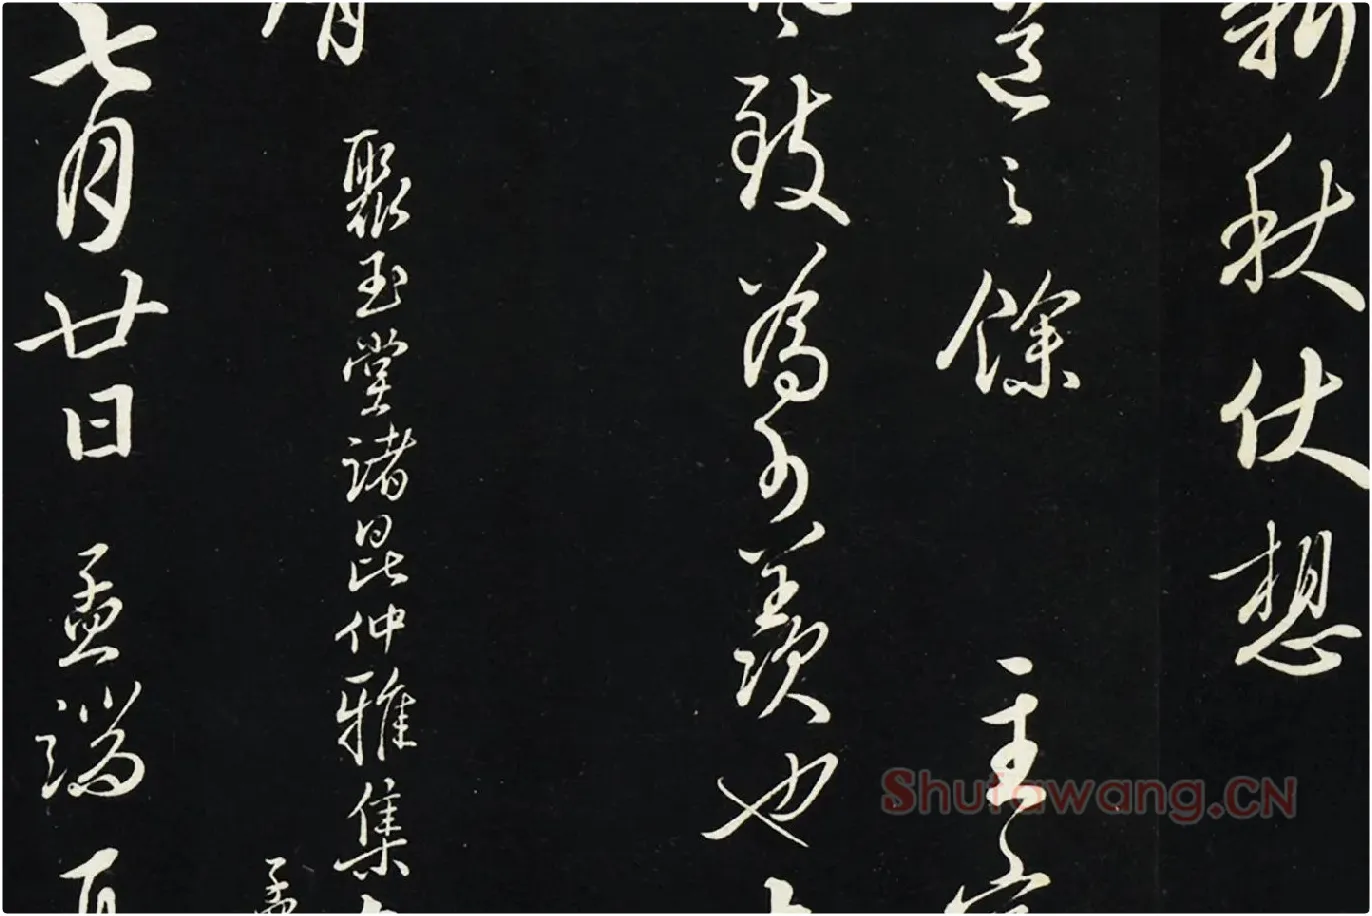 新秋仗想
道之餘 主
致為可羨也
聚玉堂諸昆仲雅集
七月廿日 孟端再
Shufawang.CN